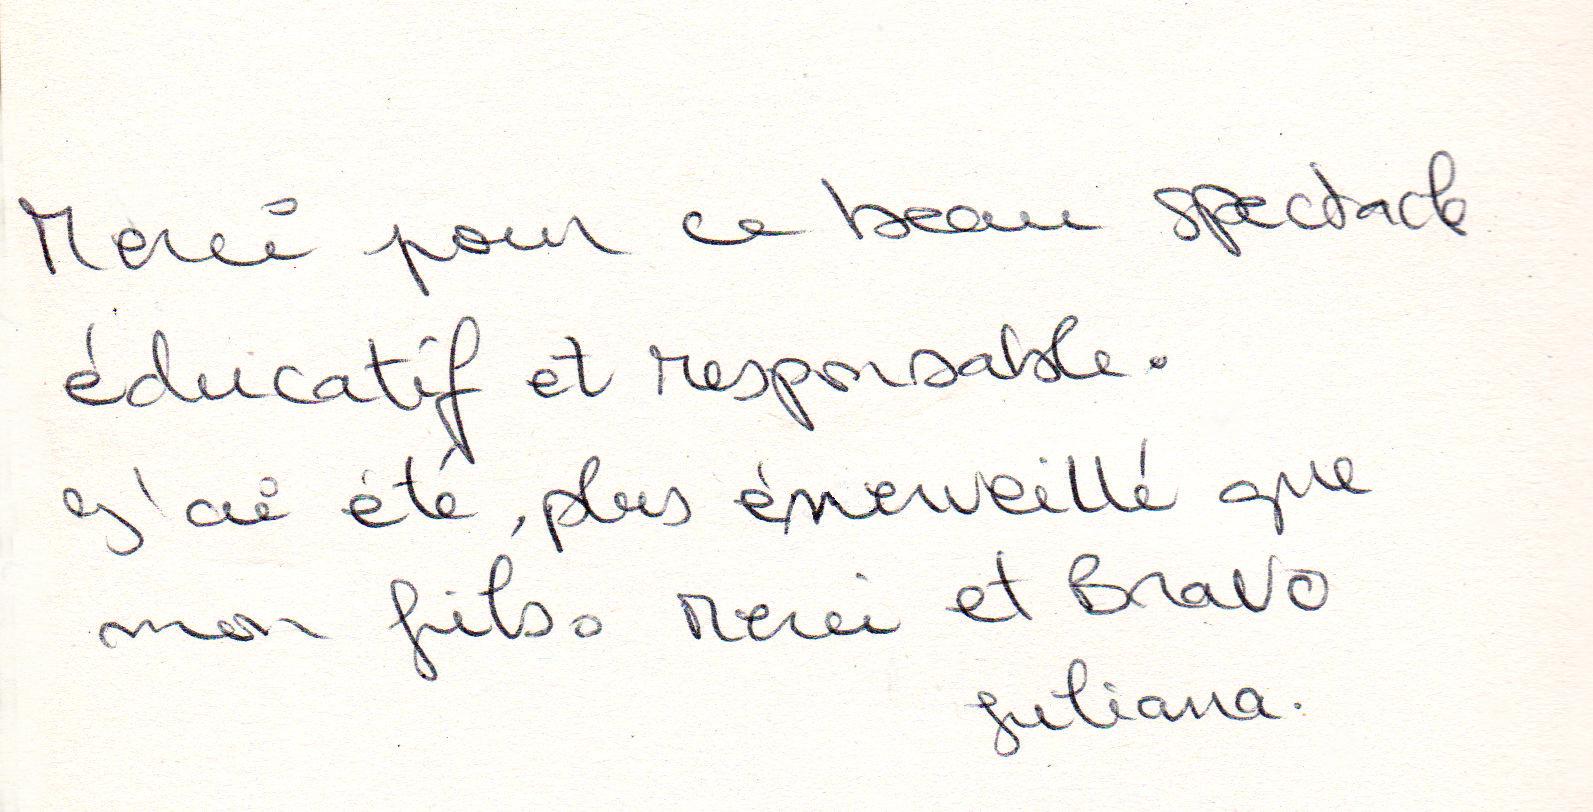 Merci pour ce beau spectacle
éducatif et responsable.
J'ai été, plus émerveillé que
mon fils. Merci et Bravo
Juliana.